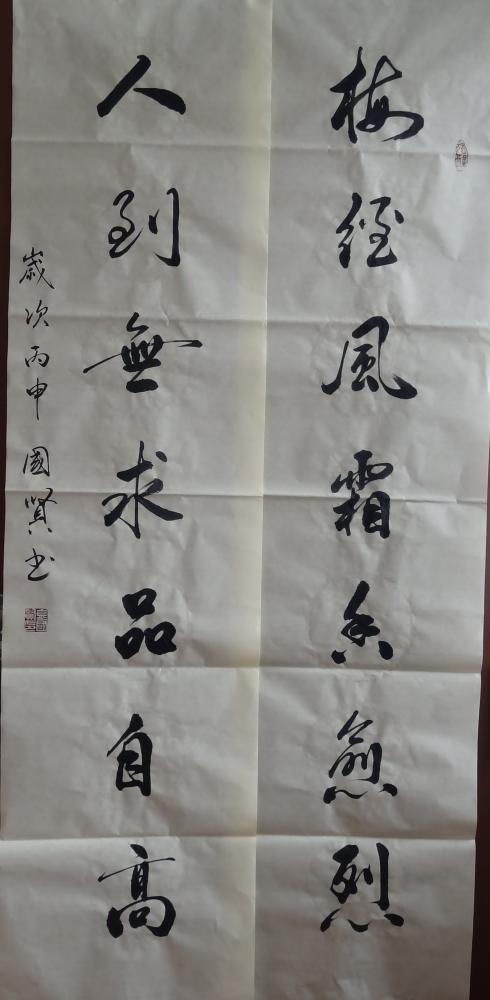 梅經風霜香愈烈
人到無求品自高
歲次丙申 國賢书